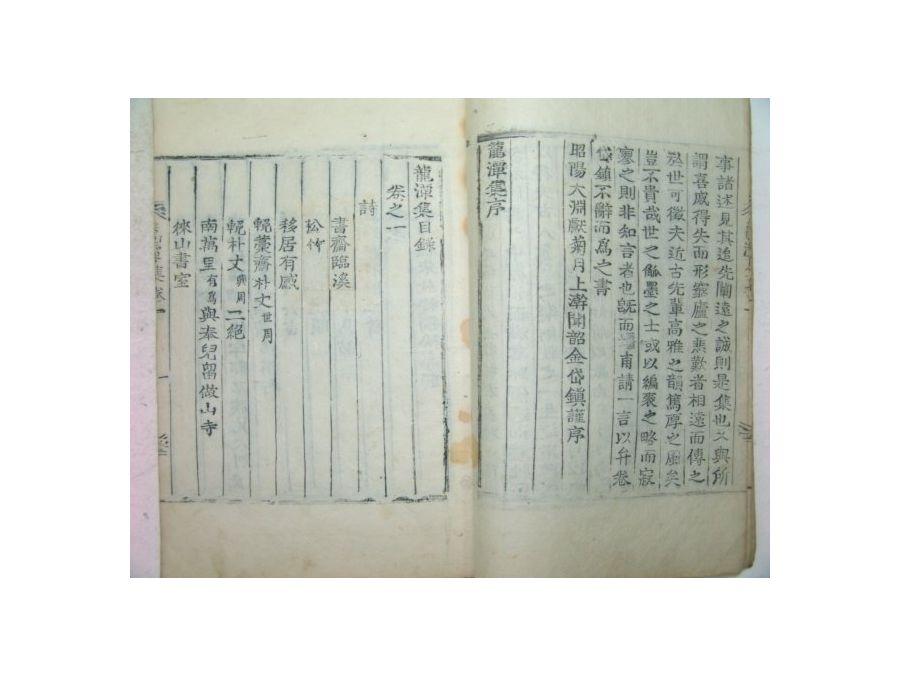 事諸述見其追先闡遠之誠則是集也又與所
謂喜戚得失而形窮廬之悲歎者相遠而傳之
於世可徵夫近古先輩高雅之韻篤厚之風矣
豈不貴哉世之觚墨之士或以編袠之略而寂
寥之則非知言者也旣而甫請一言以弁卷
岱鎭不辭而爲之書
昭陽大淵獻菊月上澣聞韶金岱鎭謹序
龍潭集序
龍潭集目錄
卷之一
詩
書齋臨溪
松竹
移居有感
輓藁齋朴丈世周
輓朴丈興周二絕
南萬里有爲與奉兒留做山寺
棶山書室